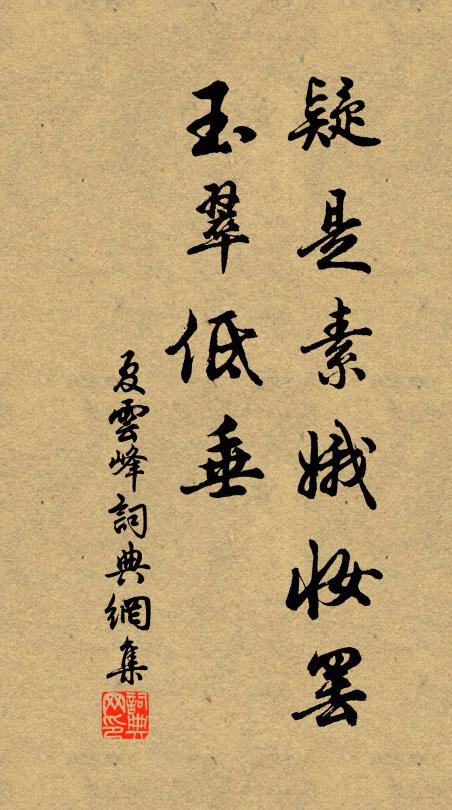 疑是素娥妝罷
玉翠低垂
夏雲峰詞典網集
詞典
网印